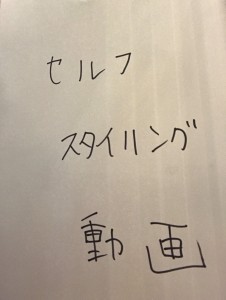 セルフ
スタイリング
動画